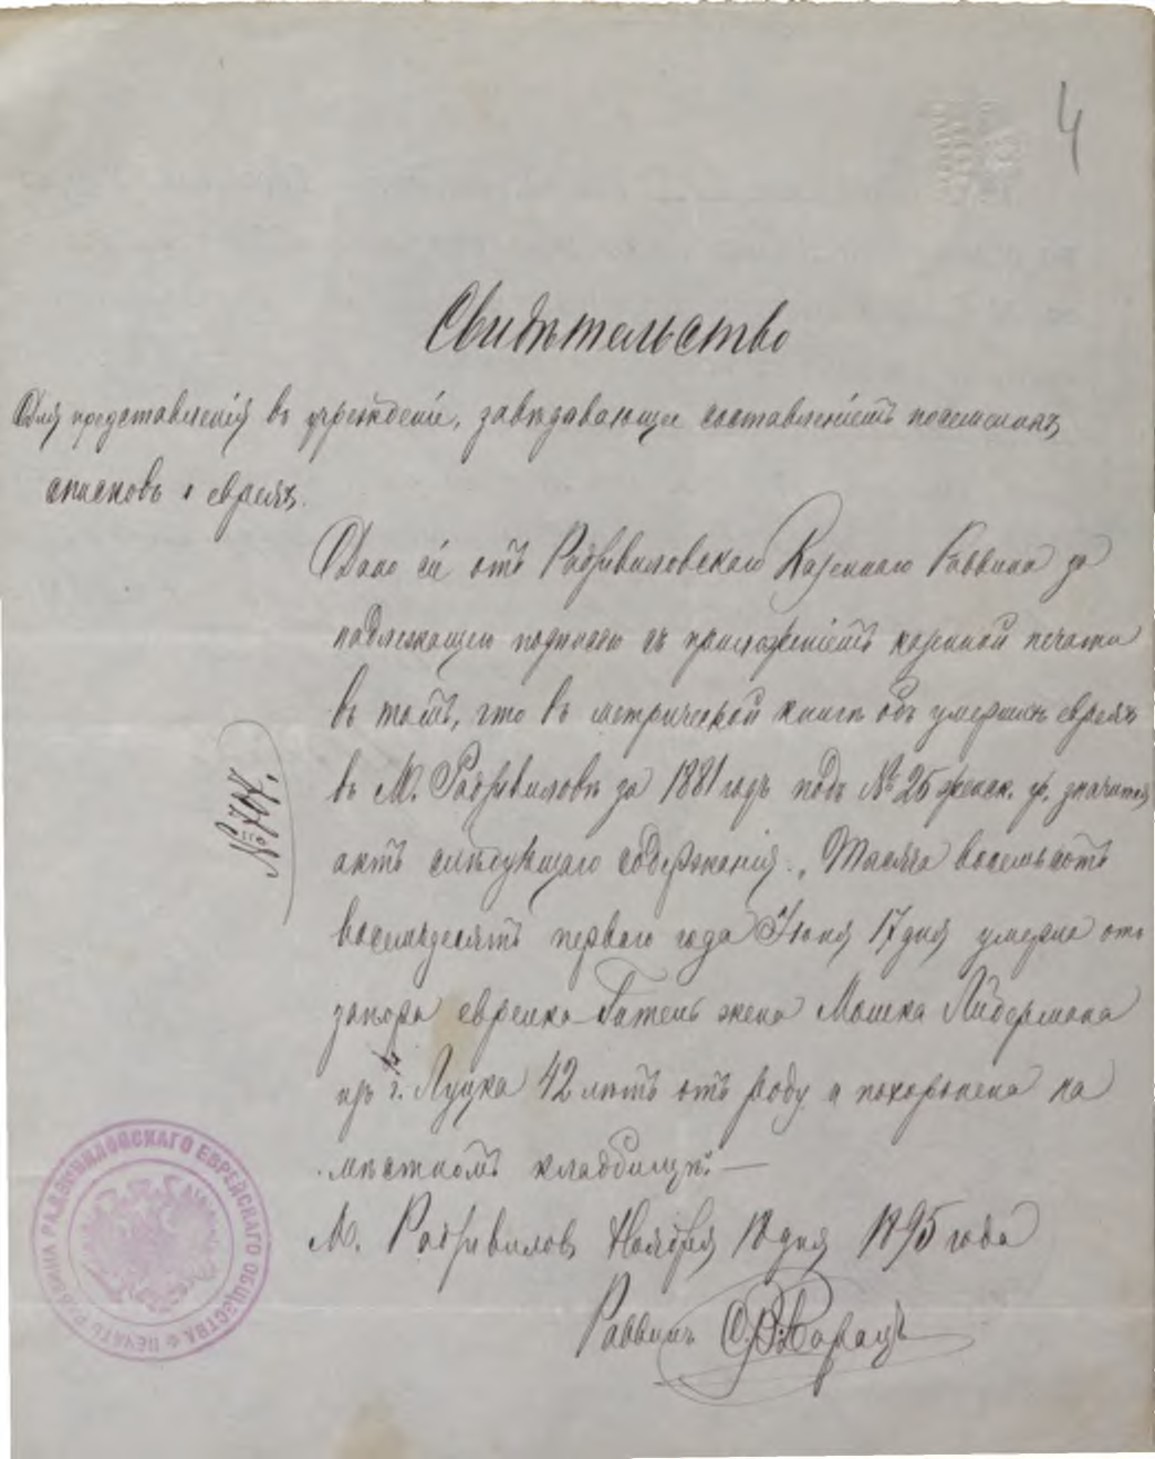 4
Свидѣтельство
Для представленія въ учрежденіе, завѣдывающее составленіемъ посемейныхъ
списковъ о евреяхъ.
Дано сіе отъ Радзивиловскаго Казеннаго Раввина за
надлежащею подписью съ приложеніемъ казенной печати
въ томъ, что въ метрической книгѣ объ умершихъ евреяхъ
въ М. Радзивиловѣ за 1881 годъ подъ № 25 женск. гр. значится
актъ слѣдующаго содержанія: „Тысяча восемьсотъ
восемьдесятъ перваго года Іюня 17 дня умерла отъ
запора еврейка жена Мошка Лидермана
изъ г. Луцка 42 лѣтъ отъ роду и похоронена на
мѣстномъ кладбищѣ". —
М. Радзивиловъ Ноября 18 дня 1895 года
Раввинъ
№
ПЕЧАТЬ РАВВИНА РАДЗИВИЛОВСКАГО ЕВРЕЙСКАГО ОБЩЕСТВА